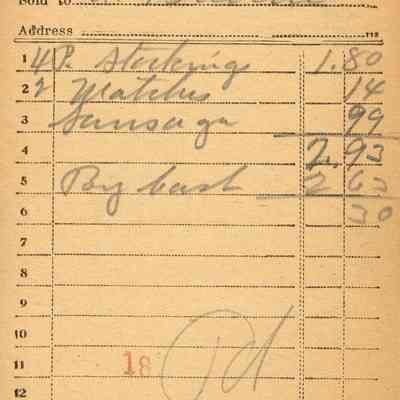 Sold to
Address 
1 4 P. Stockings 1.80
2 2 Matches 14
3 Sausage 99
4 2.93
5 By cash 2 63
6 30
7
8
9
10
11 18 Pd
12